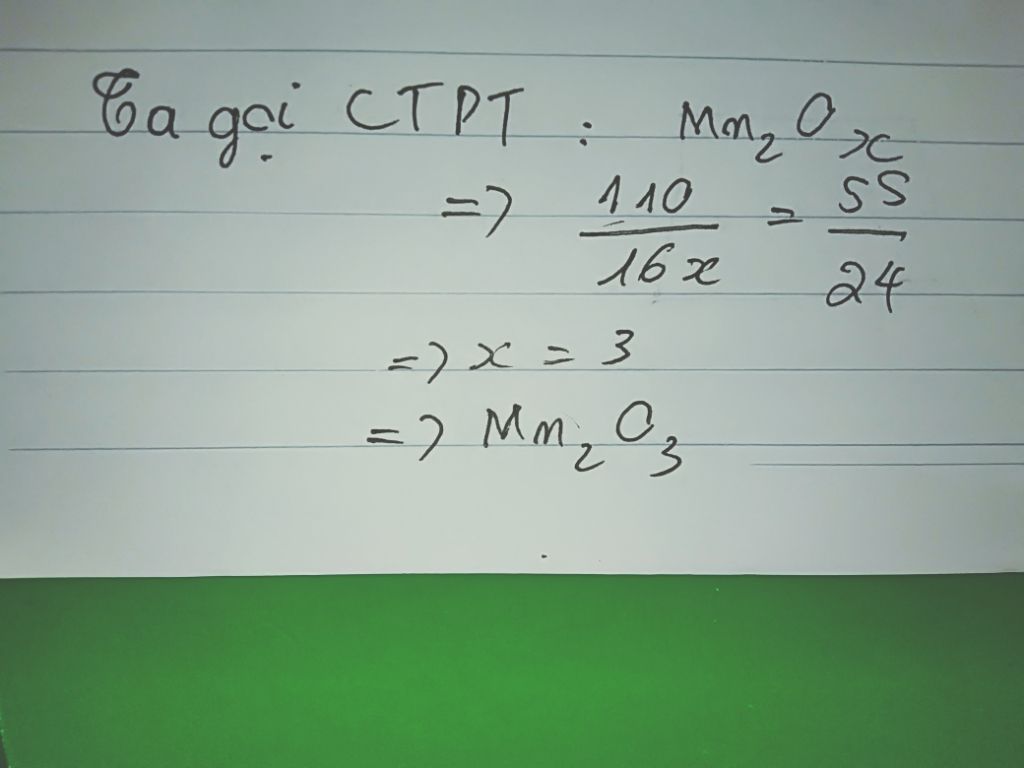 Ta gọi CTPT : Mn₂Oₓ
=> 110/16x = 55/24
=> x = 3
=> Mn₂O₃